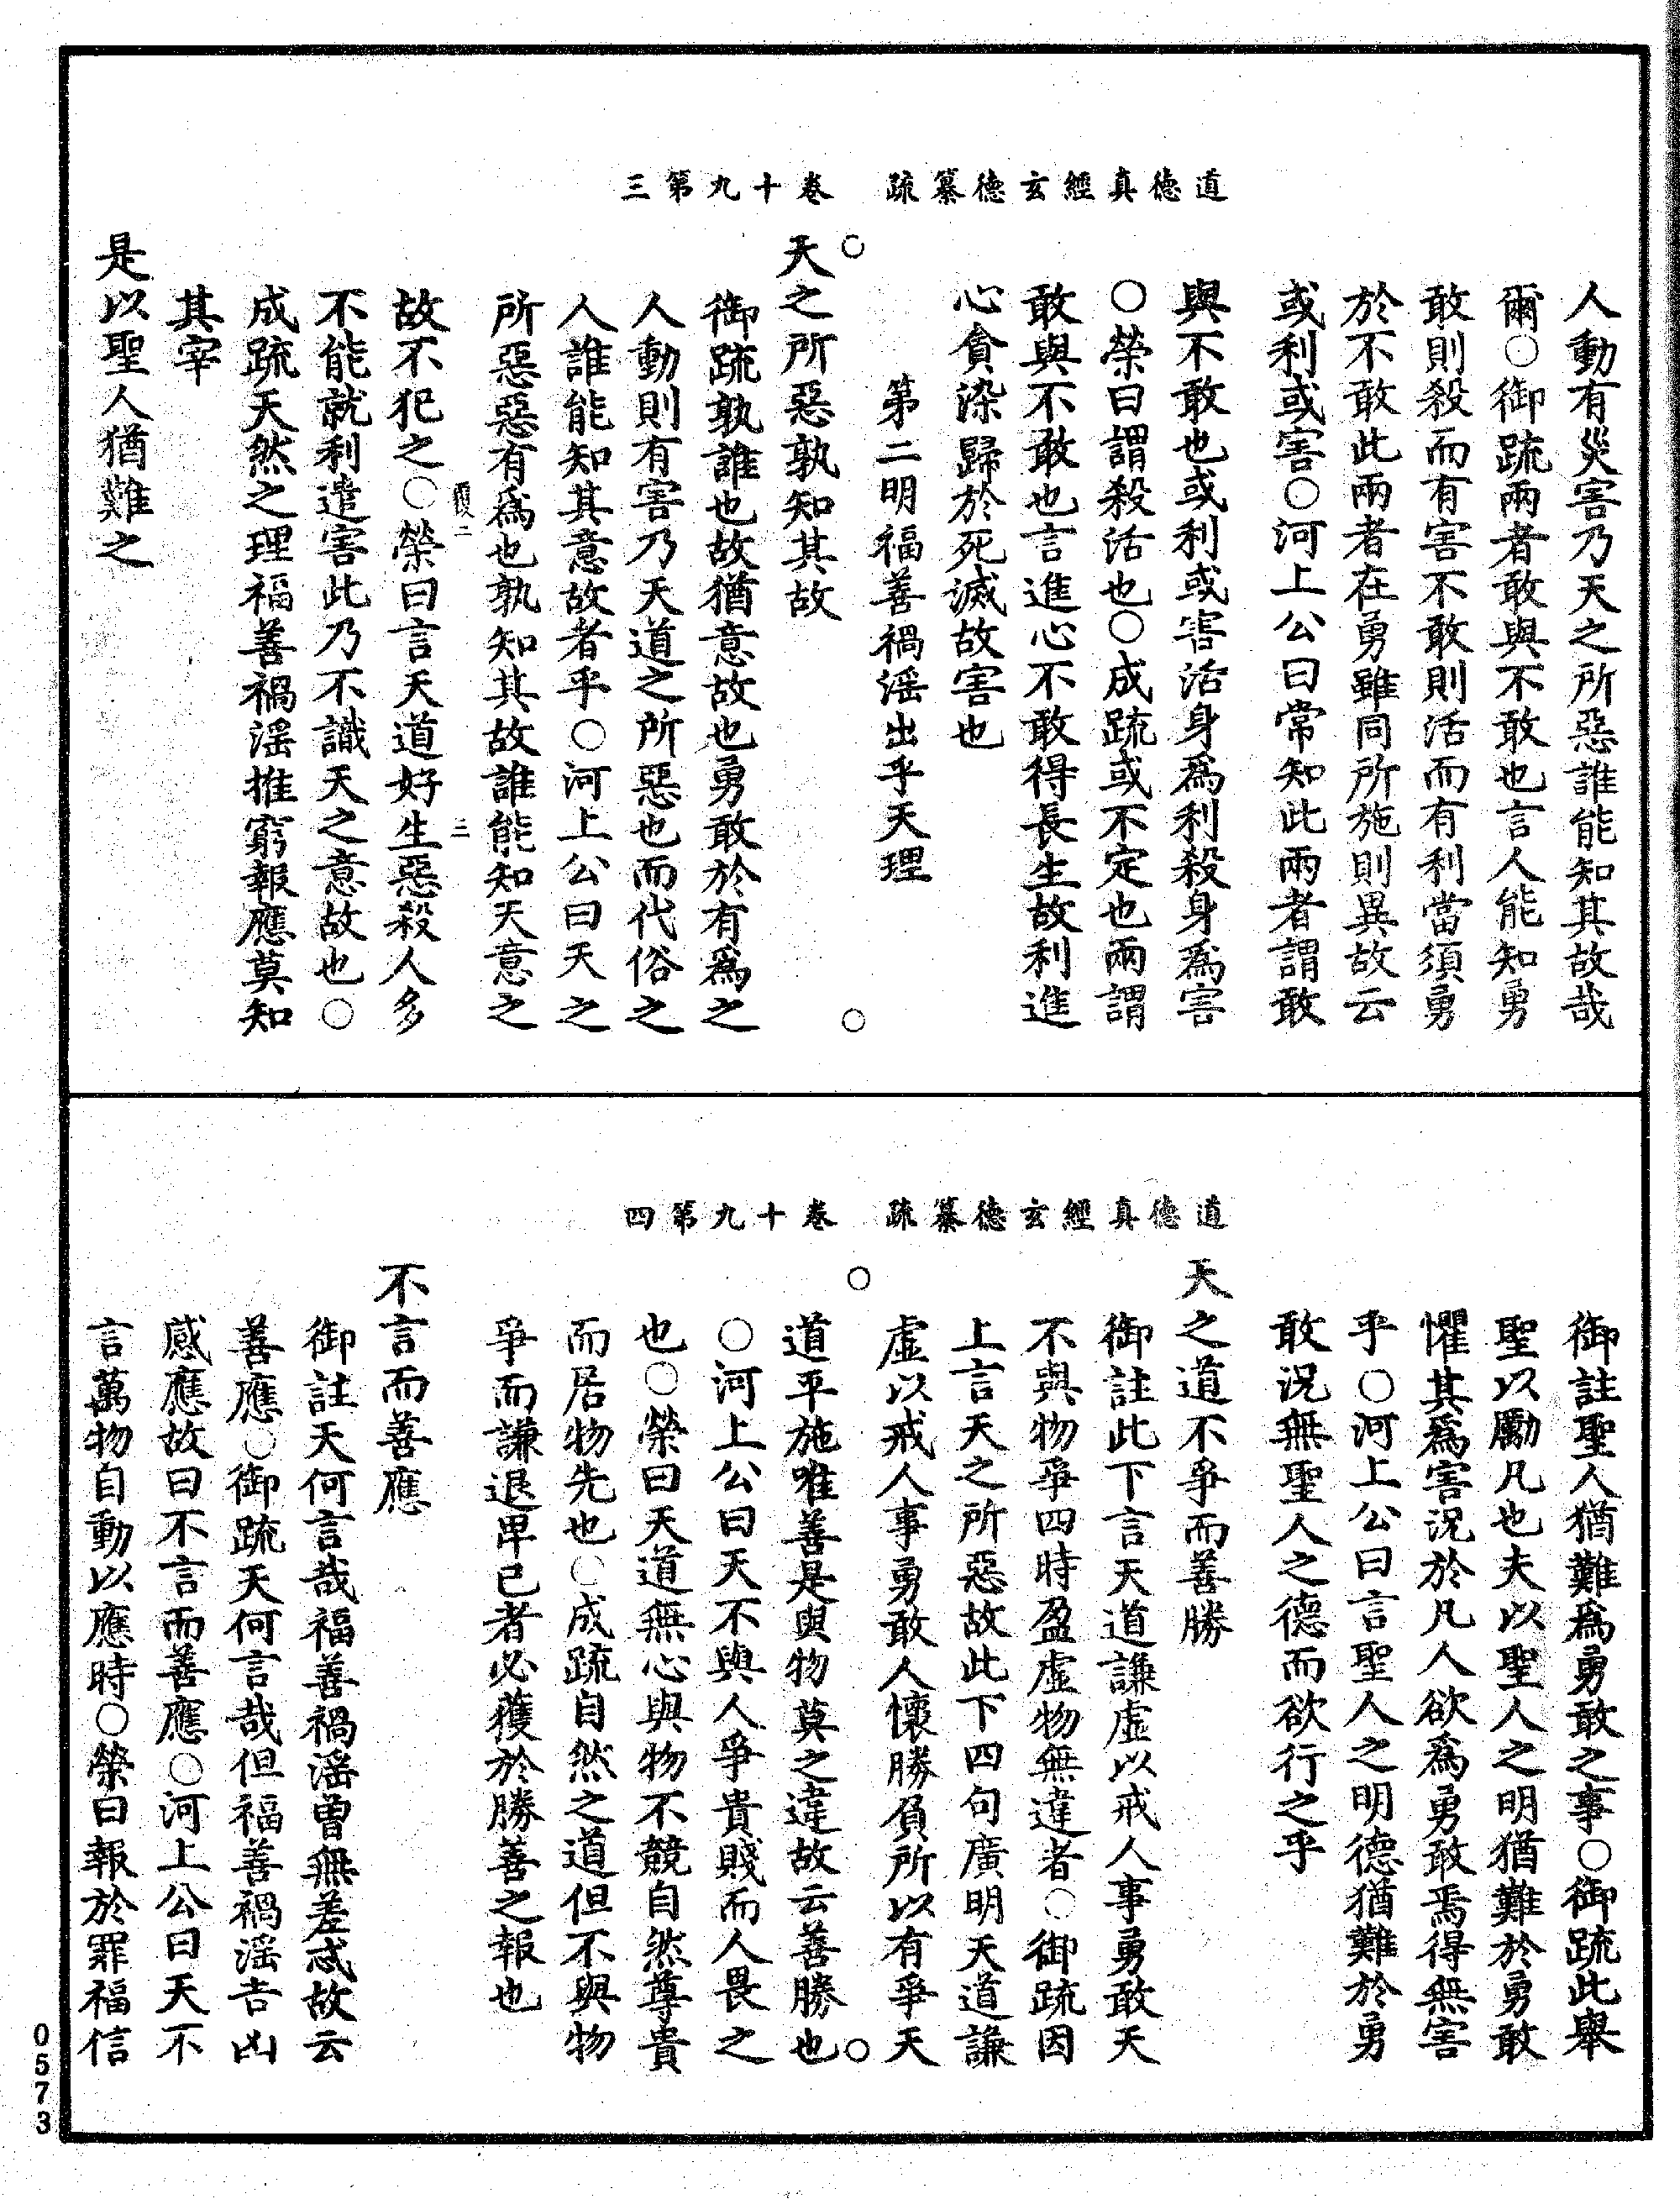 道德真經玄德纂疏　卷十九第三
人動有災害乃天之所惡誰能知其故哉
爾〇御疏兩者敢與不敢也言人能知勇
敢則殺而有害不敢則活而有利當須勇
於不敢此兩者在勇雖同所施則異故云
或利或害〇河上公曰常知此兩者謂敢
與不敢也或利或害活身為利殺身為害
〇榮曰謂殺活也〇成疏或不定也兩謂
敢與不敢也言進心不敢得長生故利進
心貪染歸於死滅故害也
第二明福善禍淫出乎天理
天之所惡孰知其故
御疏孰誰也故猶意故也勇敢於有為之
人動則有害乃天道之所惡也而代俗之
人誰能知其意故者乎〇河上公曰天之
所惡惡有為也孰知其故誰能知天意之
覆二　三
故不犯之〇榮曰言天道好生惡殺人多
不能就利遣害此乃不識天之意故也〇
成疏天然之理福善禍淫推窮報應莫知
其宰
是以聖人猶難之
道德真經玄德纂疏　卷十九第四
御註聖人猶難為勇敢之事〇御疏此舉
聖以勵凡也夫以聖人之明猶難於勇敢
懼其為害況於凡人欲為勇敢焉得無害
乎〇河上公曰言聖人之明德猶難於勇
敢況無聖人之德而欲行之乎
天之道不爭而善勝
御註此下言天道謙虛以戒人事勇敢天
不與物爭四時盈虛物無違者〇御疏因
上言天之所惡故此下四句廣明天道謙
虛以戒人事勇敢人懷勝負所以有爭天
道平施唯善是與物莫之違故云善勝也
〇河上公曰天不與人爭貴賤而人畏之
也〇榮曰天道無心與物不競自然尊貴
而居物先也〇成疏自然之道但不與物
爭而謙退卑已者必獲於勝善之報也
不言而善應
御註天何言哉福善禍淫曾無差忒故云
善應〇御疏天何言哉但福善禍淫吉凶
感應故曰不言而善應〇河上公曰天不
言萬物自動以應時〇榮曰報於罪福信
0573